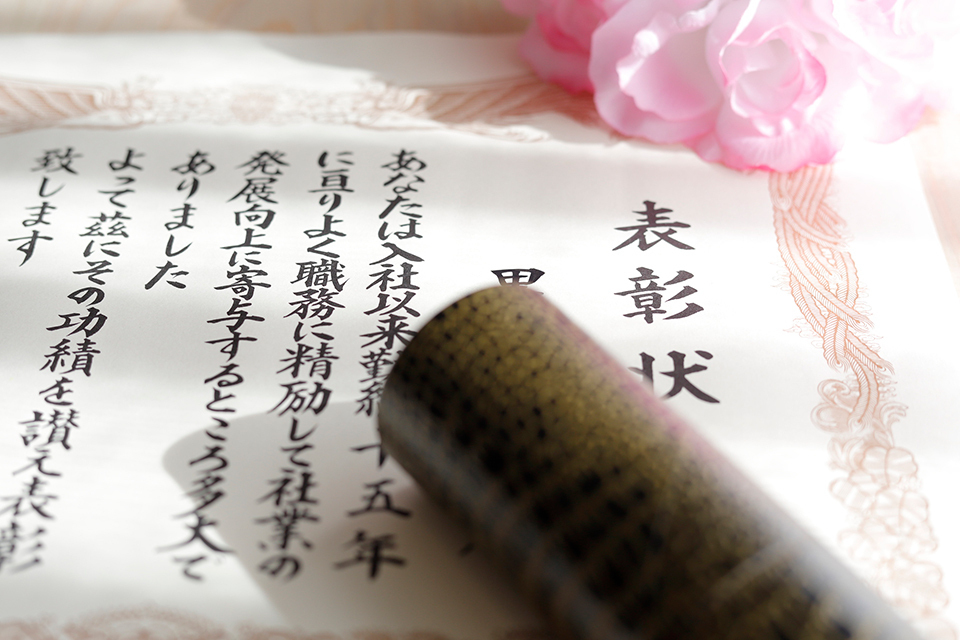 表彰状
あなたは入社以来勤続十五年
に亘りよく職務に精励して社業の
発展向上に寄与するところ多大で
ありました
よって茲にその功績を讃え表彰
致します